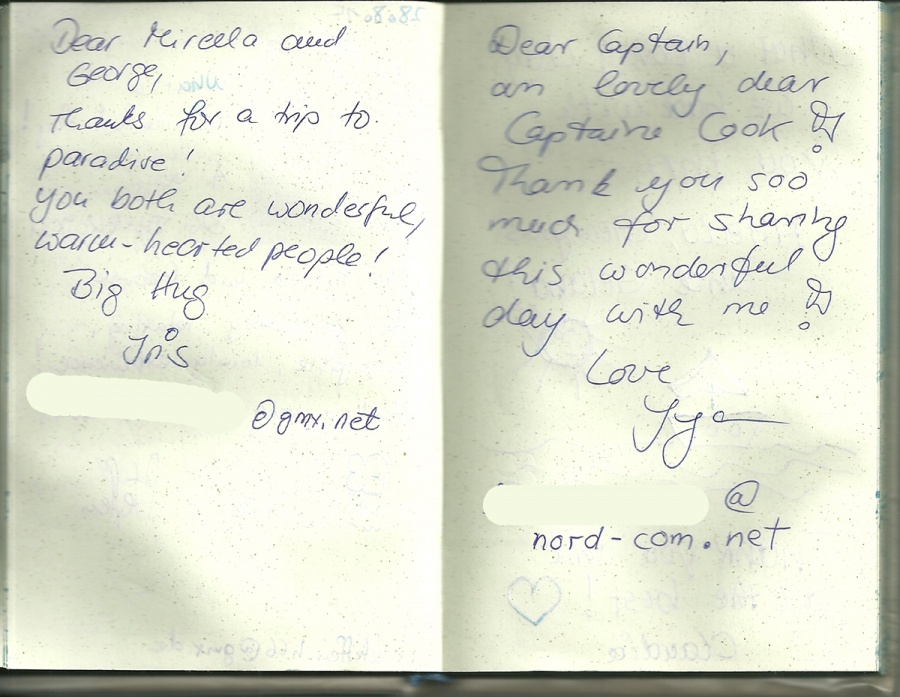 Dear Mircela and
George,
Thanks for a trip to
paradise!
you both are wonderful,
warm-hearted people!
Big Hug
Iris
@gmx.net
Dear Captain,
an lovely dear
Captaine Cook!
Thank you soo
much for sharing
this wonderful
day with me!
Love
@
nord-com.net